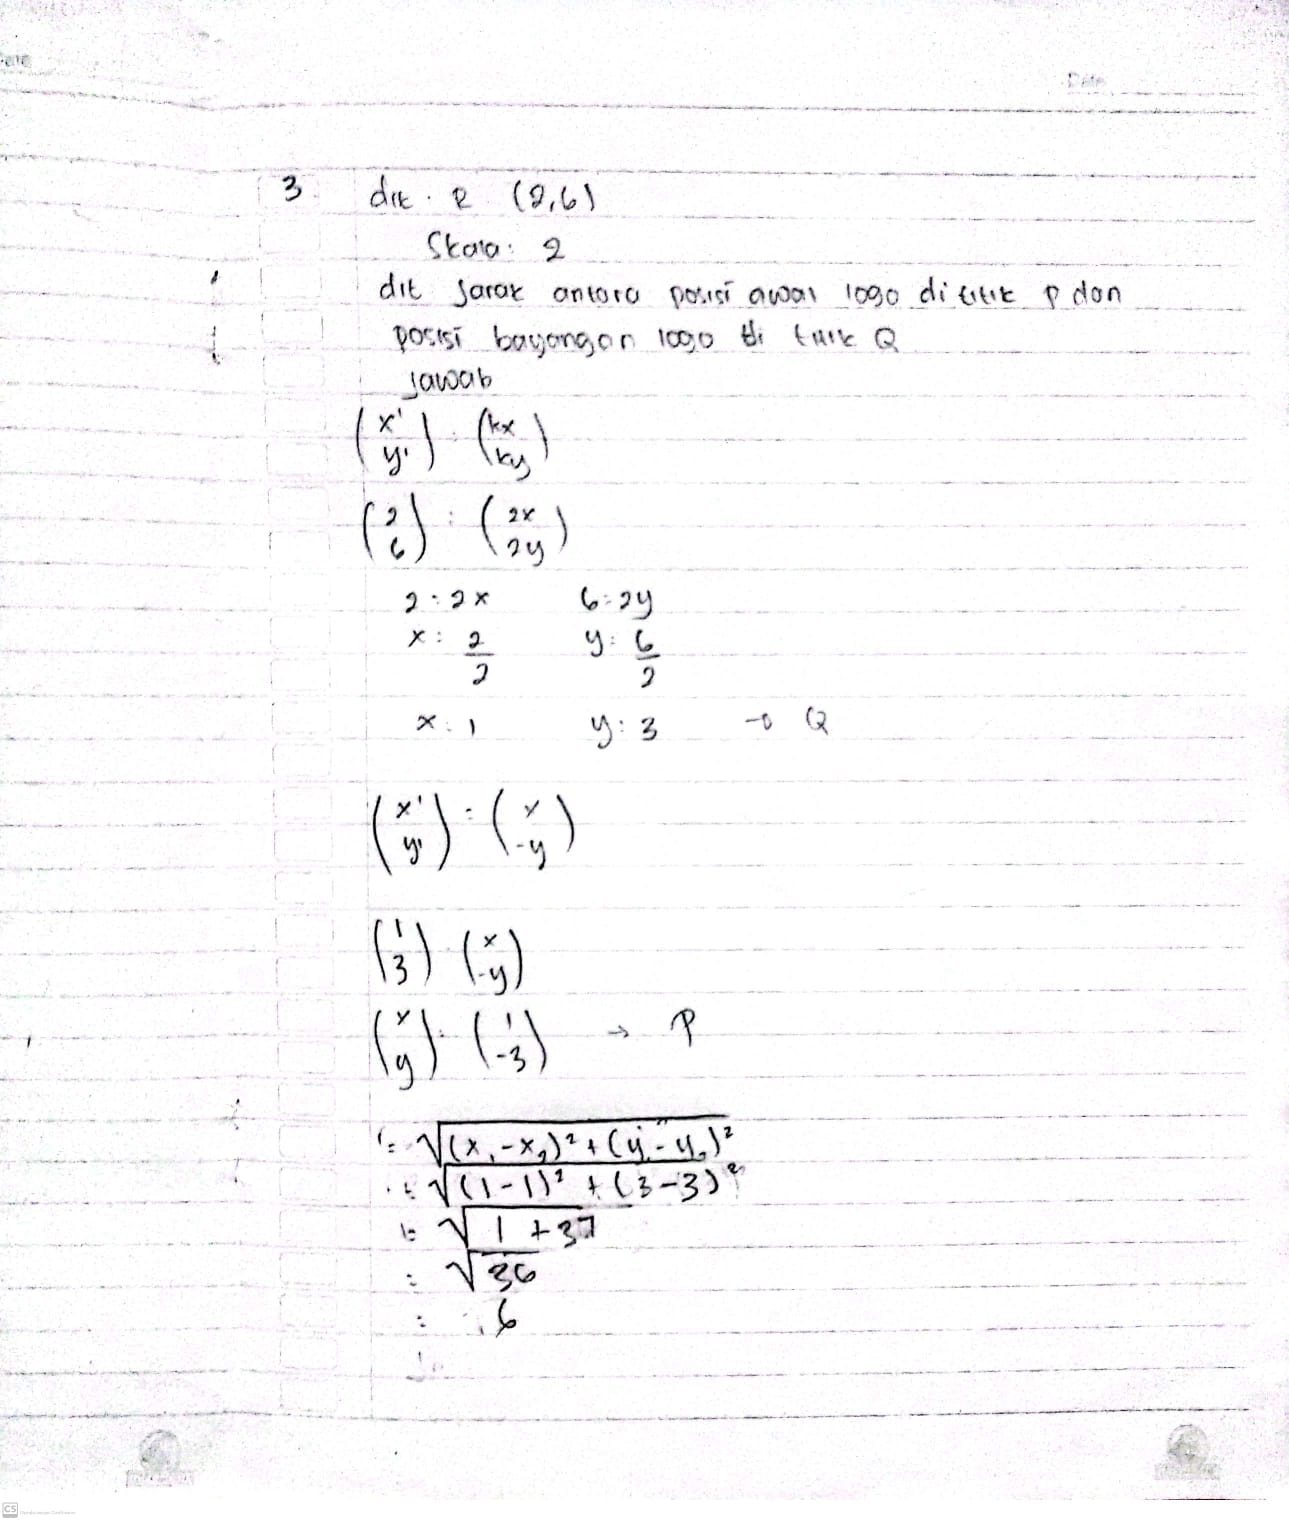 Date
3 dik . R (2,6)
Skala: 2
dit jarak antara posisi awal logo di titik P dan
posisi bayangan logo di titik Q
jawab
(x' y') = (kx ky)
(2 6) = (2x 2y)
2 = 2x 6 = 2y
x = 2/2 y = 6/2
x = 1 y = 3 → Q
(x' y') = (x -y)
(1 3) (x -y)
(x y) = (1 -3) → P
= √(x₁-x₂)² + (y₁-y₂)²
= √(1-1)² + (3-3)²
= √1+37
= √36
= 6
CS